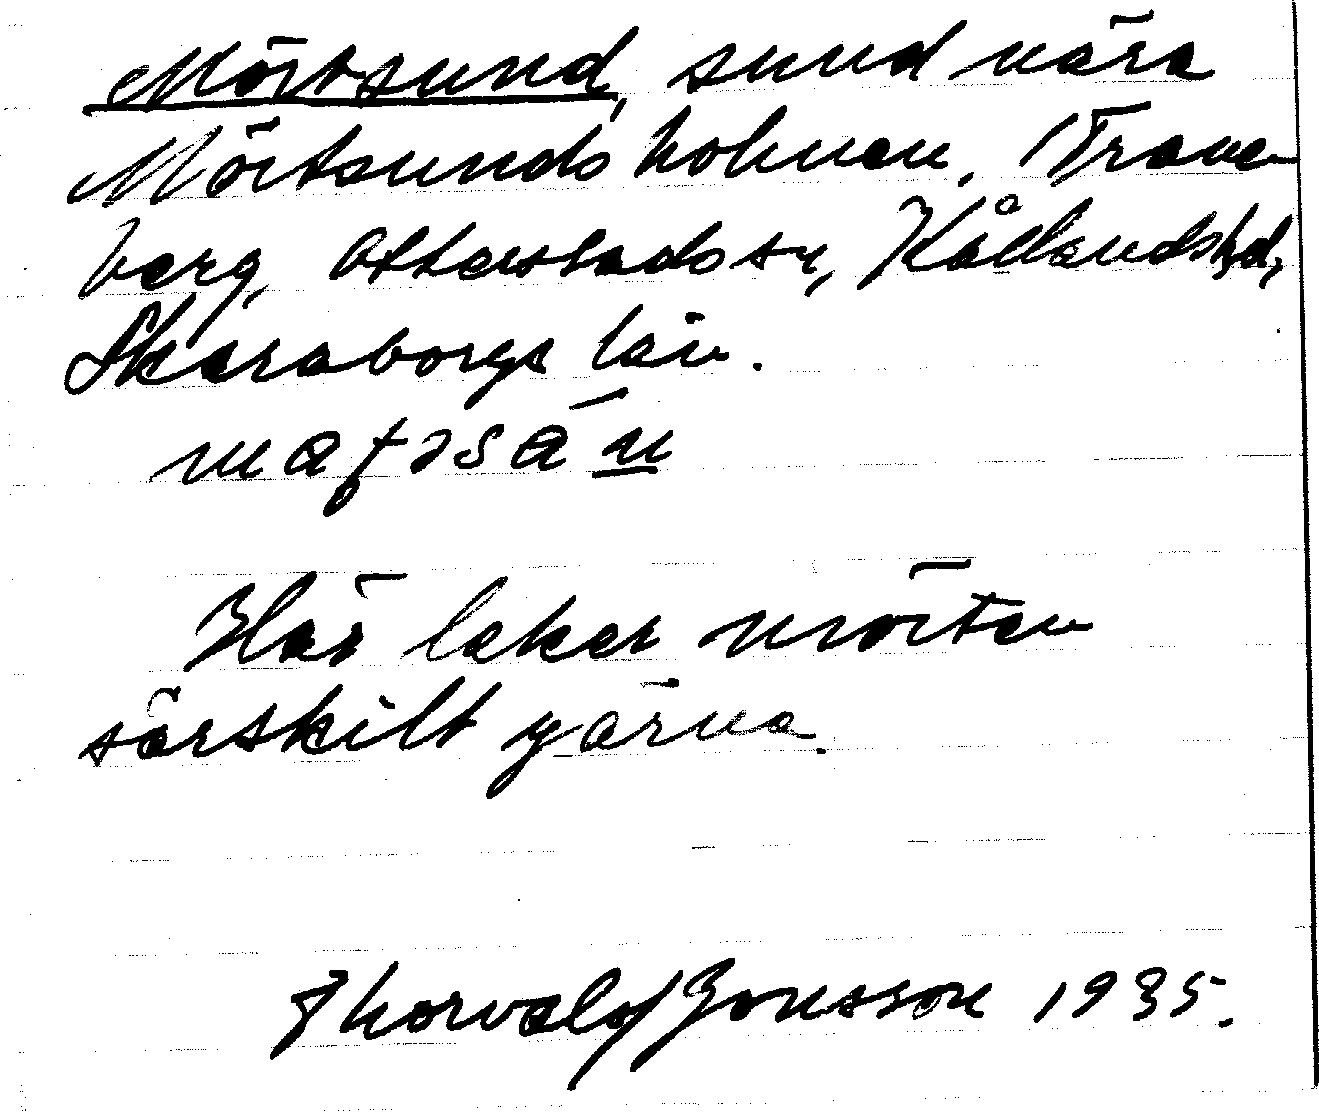 Mörtsund, sund nära
Mörtsundsholmen, Trane-
berg, Otterstads sn, Kållands hd,
Skaraborgs län.
Här leker mörten
särskilt gärna.
Thorvald Jonsson 1935.